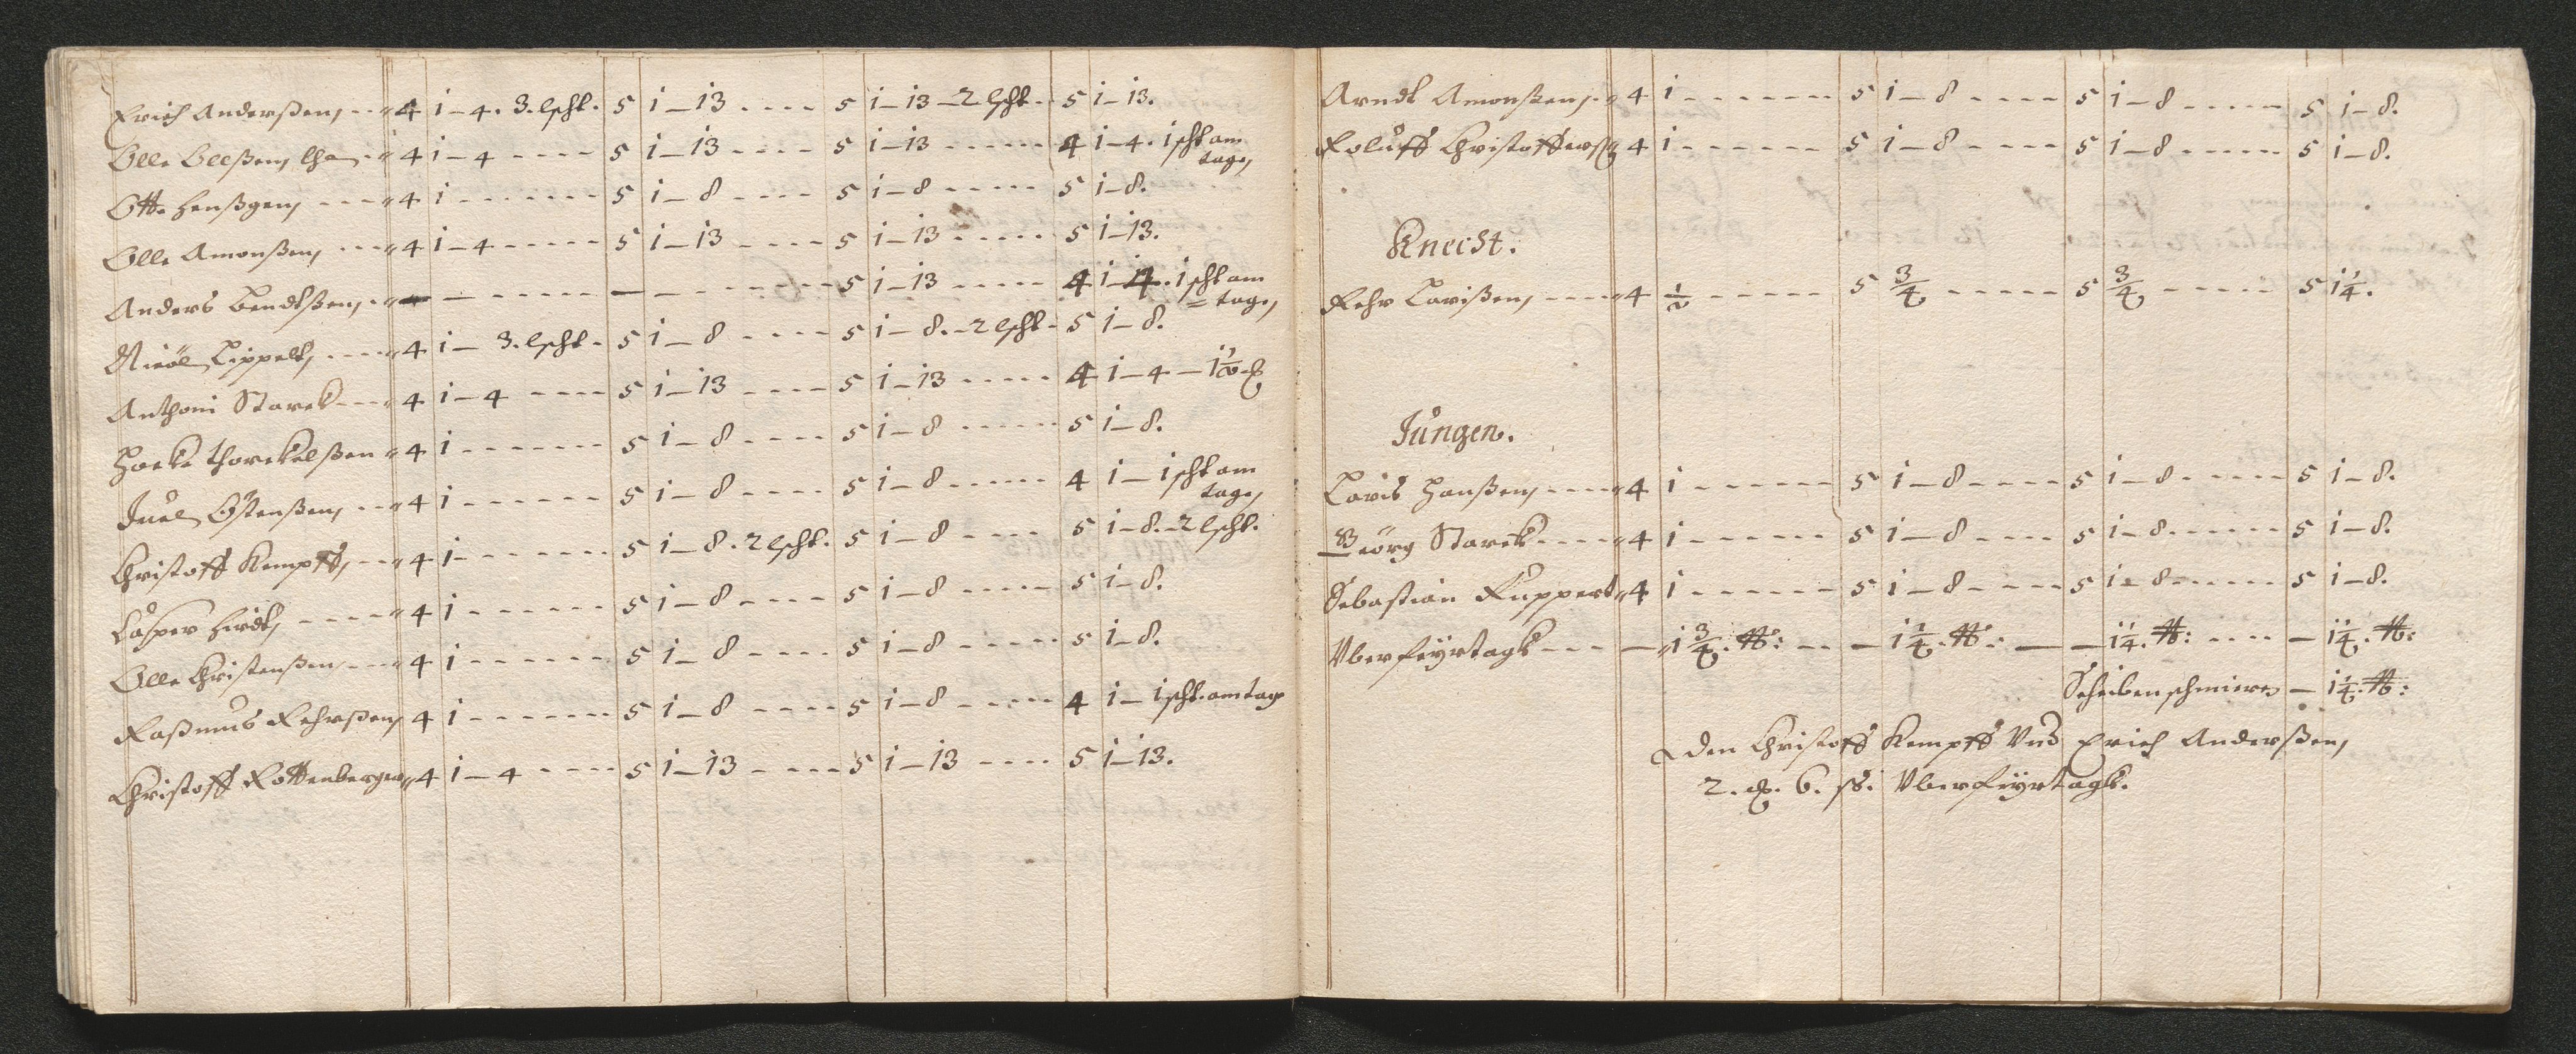 Erich Anderßen, - - " 4 i - 4. 3. lscht. 5 i - i3 - - - - 5 i - i3 - 2 lscht. - 5 i - i3.
Olle Olleßen, - " 4 i - 4 - - - - 5 i - i3 - - - - 5 i - i3 - - - - - 4 i - 4. i scht am tage,
Otte Henßgen, - - - " 4 i - - - - - - 5 i - 8 - - - - 5 i - 8 - - - - - 5 i - 8.
Olle Amonßen, - - - " 4 i - 4 - - - - - 5 i - i3 - - - - 5 i - i3 - - - - - 5 i - i3.
Anders Bendtßen, - " - - - - - - - - - - 5 i - i3 - - - - - 4 i - 4. i scht am = tage,
Nicol Lippelt, - - - " 4 i - 3. lscht. - 5 i - 8 - - - - 5 i - 8. - 2 lscht - 5 i - 8.
Anthoni Starck - - - " 4 i - 4 - - - - 5 i - i3 - - - - 5 i - i3 - - - - - 4 i - 4 - i 1/2
Hoeke Thorckelßen " 4 i - - - - - - 5 i - 8 - - - - 5 i - 8 - - - - - 5 i - 8.
Juel Ostenßen, - - " 4 i - - - - - - 5 i - 8 - - - - 5 i - 8 - - - - - 4 i - i scht am tage,
Christoff Kempff, - - " 4 i - - - - - - 5 i - 8. 2 lscht. 5 i - 8 - - - - 5 i - 8. - 2 lscht.
Casper Hirdt, - - - - " 4 i - - - - - - 5 i - 8 - - - - 5 i - 8 - - - - - 5 i - 8.
Olle Christenßen, - - - " 4 i - - - - - - 5 i - 8 - - - - 5 i - 8 - - - - - 5 i - 8.
Raßmus Rehrßen, 4 i - - - - - - 5 i - 8 - - - - 5 i - 8 - - - - - 4 i - i scht. am tage
Christoff Rottenberger " 4 i - 4 - - - - 5 i - i3 - - - - 5 i - i3 - - - - 5 i - i3.
Arndt Amonßen, - " 4 i - - - - - - 5 i - 8 - - - - 5 i - 8 - - - - - 5 i - 8.
Roluff Christofferß 4 i - - - - - - 5 i - 8 - - - - 5 i - 8 - - - - - 5 i - 8.
Knecht.
Rehr Larißen, - - - - " 4 1/2 - - - - - 5 3/4 - - - - - 5 3/4 - - - - - 5 i 1/4.
Jungen.
Laris Hanßen, - - - - " 4 i - - - - - - 5 i - 8 - - - - 5 i - 8 - - - - - 5 i - 8.
Georg Starck - - - - " 4 i - - - - - - 5 i - 8 - - - - 5 i - 8 - - - - - 5 i - 8.
Sebastian Ruppert " 4 i - - - - - - 5 i - 8 - - - - 5 i - 8 - - - - - 5 i - 8.
Vberfeyrtagk - - - - " i 3/4. - - - i 1/4. - - i 1/4. - - - - - i 1/4.
Scheiben schmieren - i 1/4.
Den Christoff Kempff Vnd Erich Anderßen,
2. 6. ß. Vberfeyrtagk.